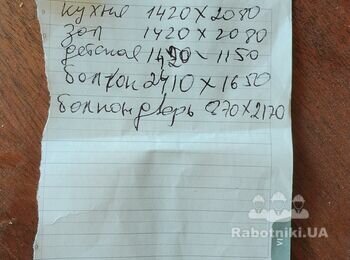 кухня 1420 х 2080
зал 1420 х 2080
детская 1420 х 1150
балкон 2410 х 1650
балкон дверь 870 х 2170
Rabotniki.UA